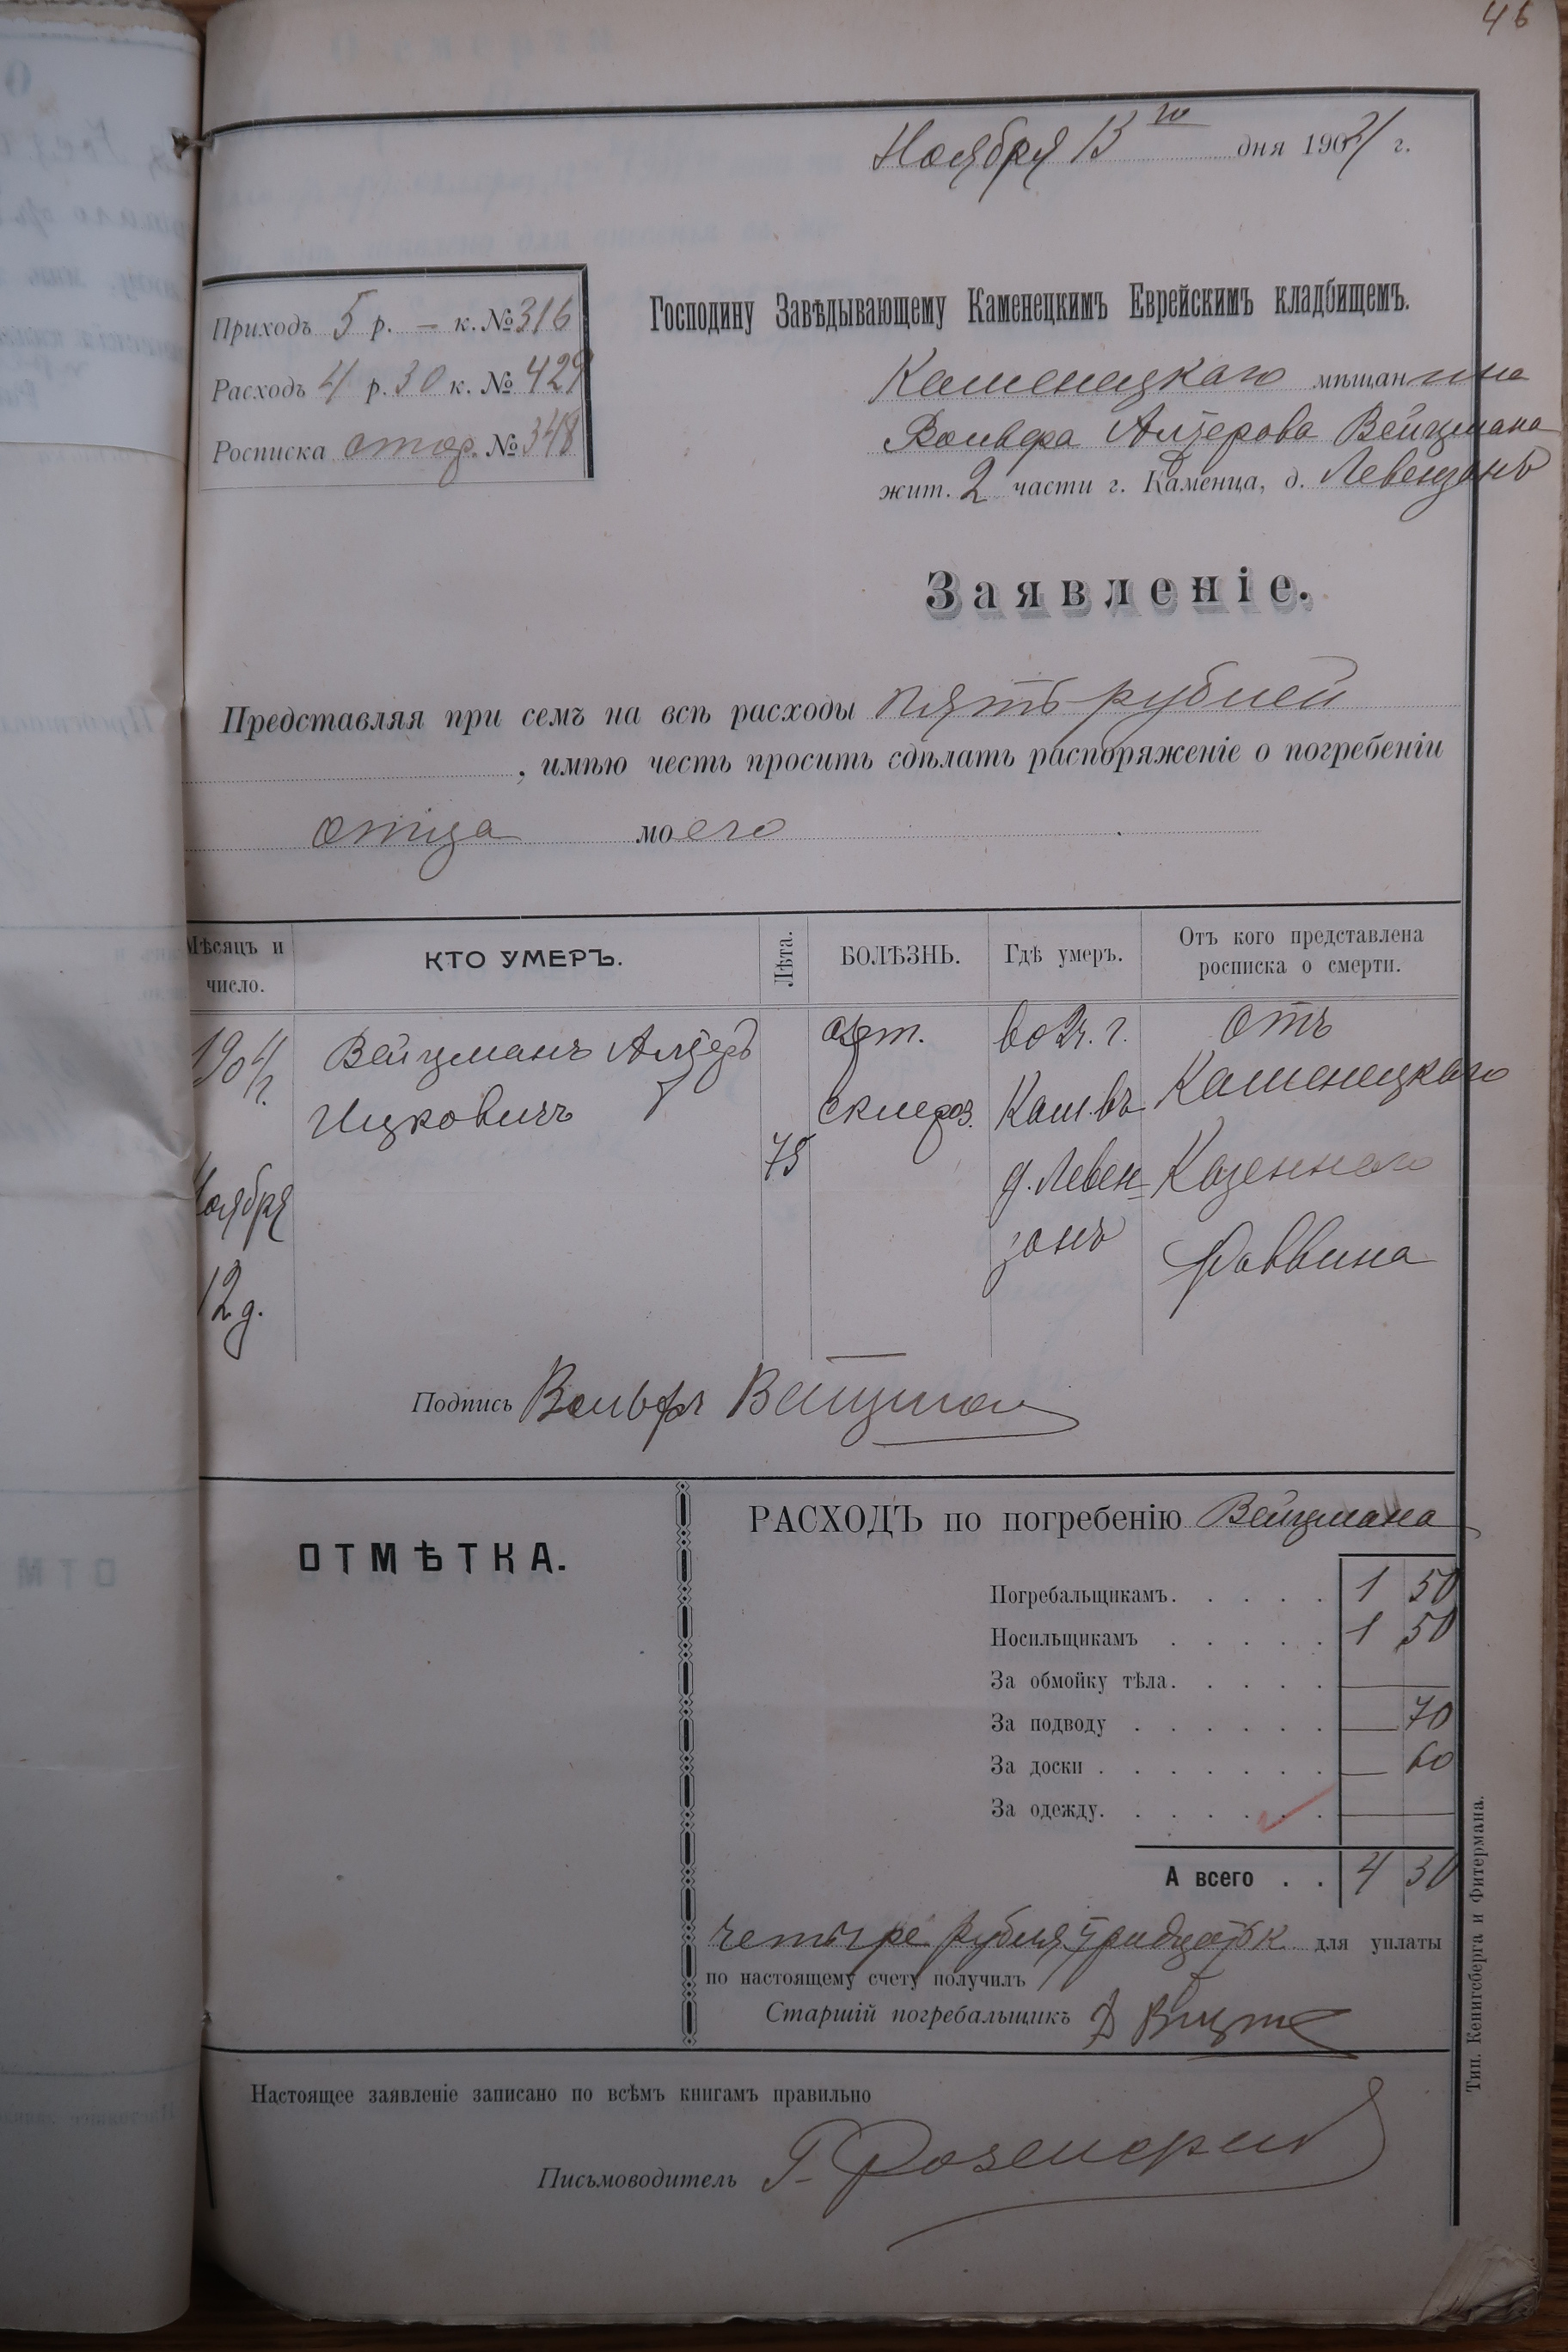 46
Ноября 13го дня 1904 г.
Приходъ 5 р. — к. № 316
Расходъ 4 р. 30 к. № 429
Росписка стор. № 348
Господину Завѣдывающему Каменецкимъ Еврейскимъ кладбищемъ.
Каменецкаго мѣщанина
Вольфа Алтерова Вейцмана
жит. 2 части г. Каменца, д. Левензонъ
Заявленіе.
Представляя при семъ на всѣ расходы пять рублей
, имѣю честь просить сдѣлать распоряженіе о погребеніи
отца моего
Мѣсяцъ и число.
КТО УМЕРЪ.
Лѣта.
БОЛѢЗНЬ.
Гдѣ умеръ.
Отъ кого представлена
росписка о смерти.
1904 г.
Ноября
12 д.
Вейцманъ Алтеръ
Ицковичъ
75
арт.
склероз.
во 2 ч. г.
Кам. въ
д. Левен-
зонъ
отъ
Каменецкаго
Казеннаго
Раввина
Подпись Вольфъ Вейцман
ОТМѢТКА.
РАСХОДЪ по погребенію Вейцмана
Погребальщикамъ. . . . . 1 50
Носильщикамъ . . . . . 1 50
За обмойку тѣла. . . . . —
За подводу . . . . . . — 70
За доски . . . . . . . — 60
За одежду. . . . . . —
А всего . . 4 30
четыре рубля тридцать к. для уплаты
по настоящему счету получилъ
Старшій погребальщикъ
Настоящее заявленіе записано по всѣмъ книгамъ правильно
Письмоводитель Г.
Тип. Кенигсберга и Фитермана.